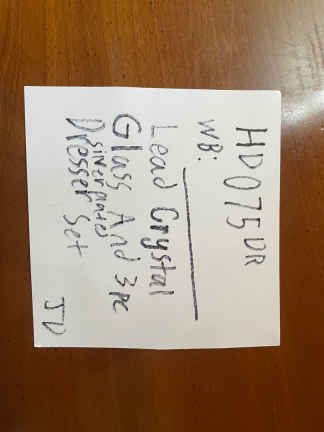 HD075DR
WB:
Lead Crystal
Glass And 3pc
Silverplated
Dresser Set
JD